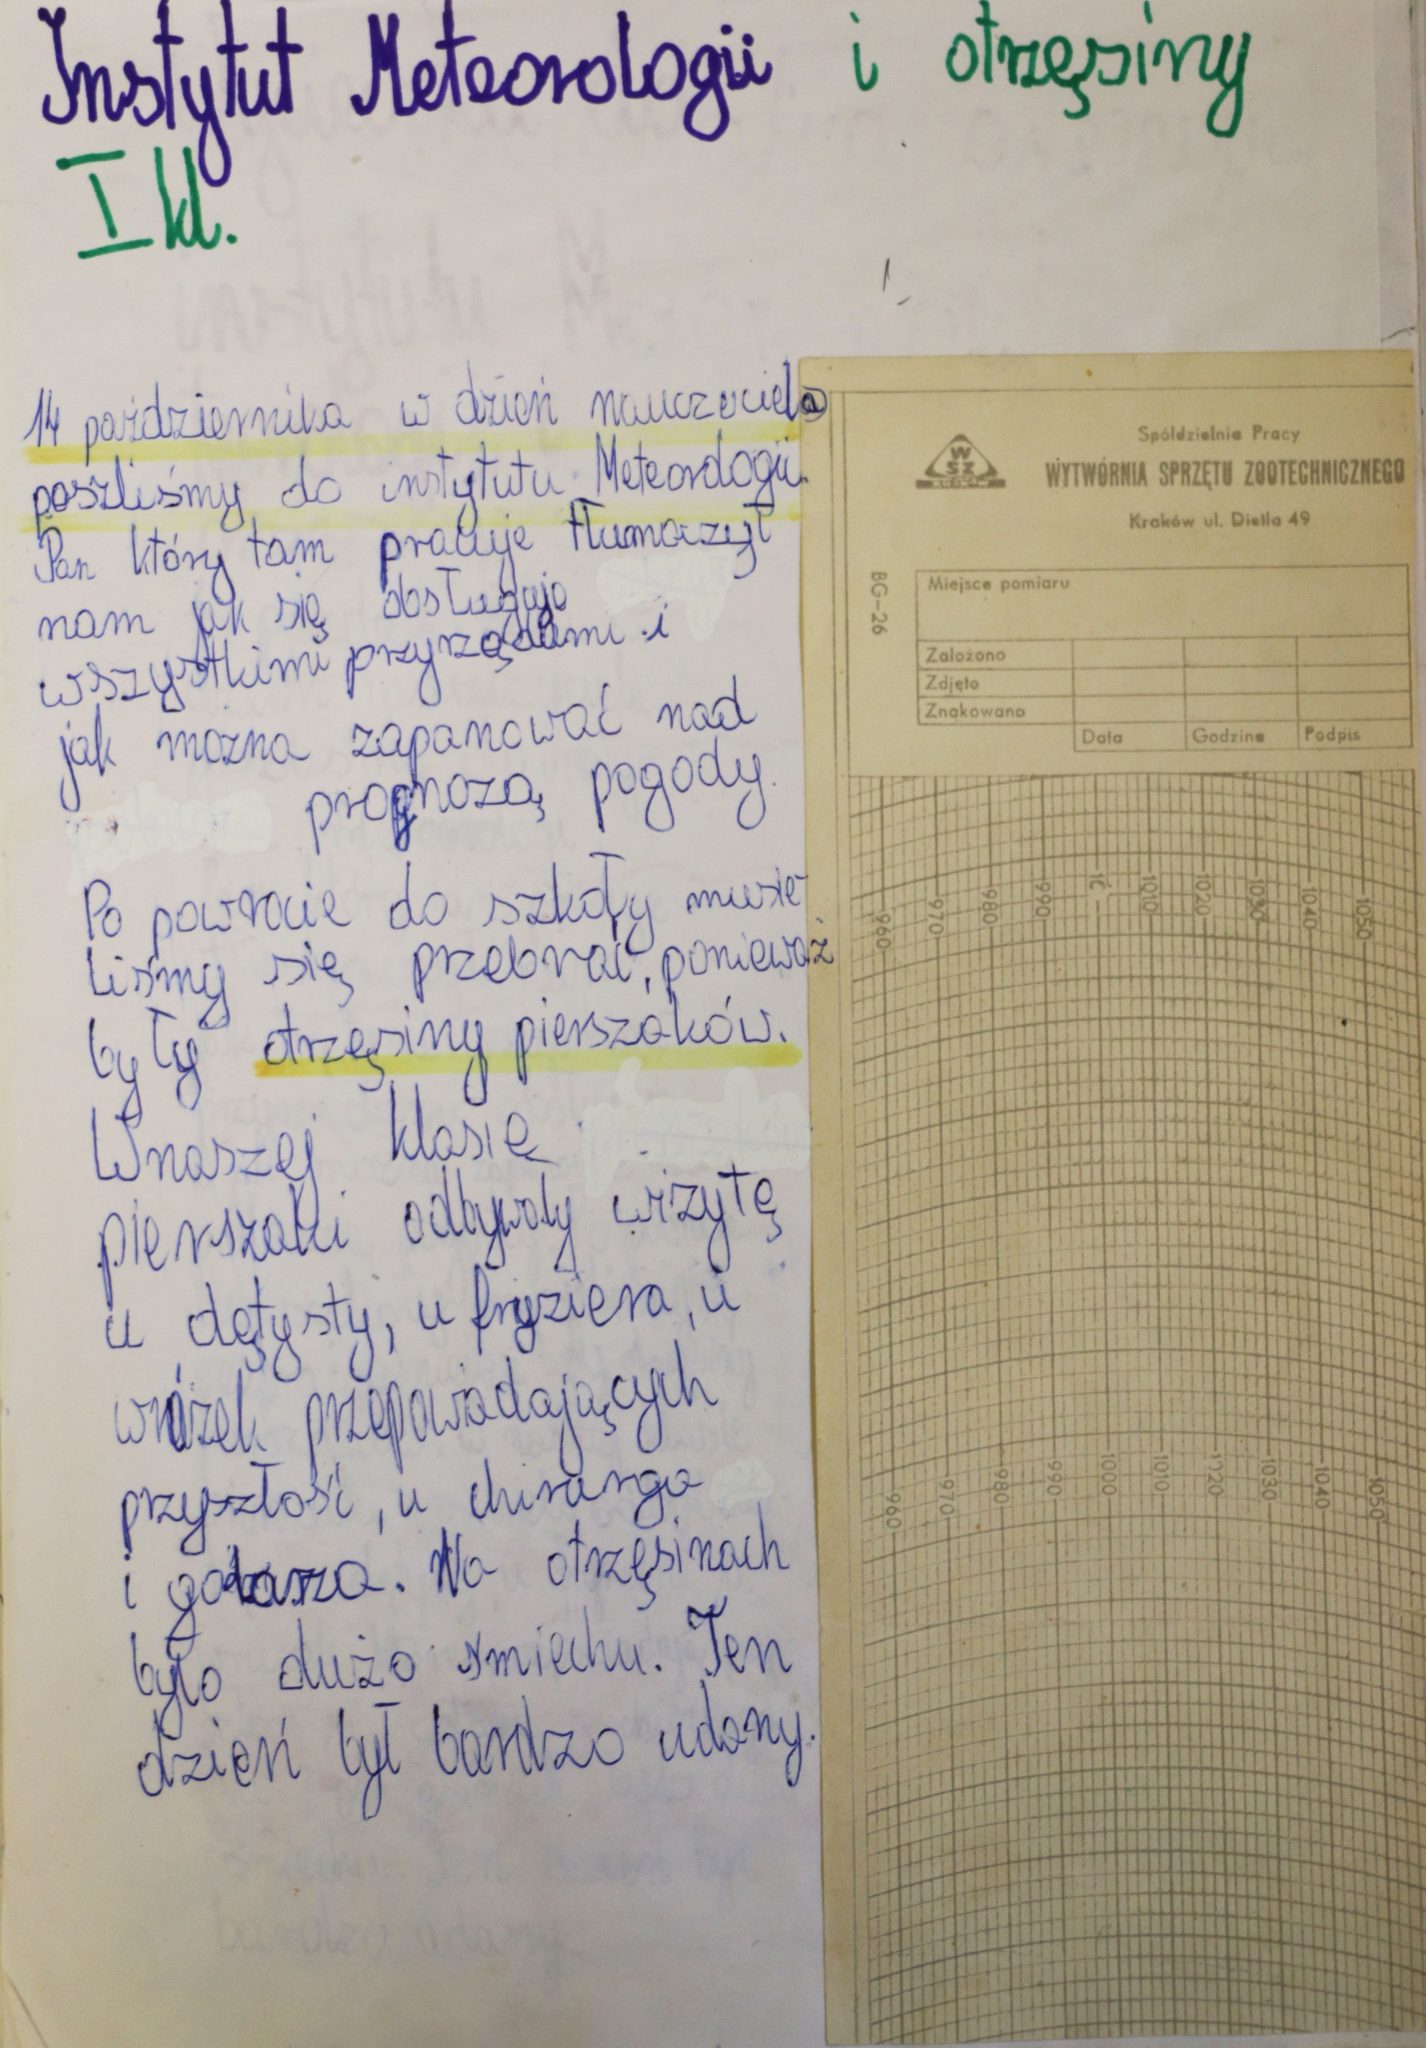 Instytut Meteorologii i otrzęsiny
I kl.
14 października w dzień nauczyciela
poszliśmy do instytutu Meteorologii.
Pan który tam pracuje tłumaczył
nam jak się obsługuje
wszystkimi przyrządami i
jak można zapanować nad
prognozą pogody.
Po powrocie do szkoły musie
liśmy się przebrać, ponieważ
były otrzęsiny pierszaków.
Wnaszej klasie
pierszaki odbywały wizytę
u dętysty, u fryziera, u
wróżek przepowiadających
przyszłość, u chirurga
i golarza. Na otrzęsinach
było dużo śmiechu. Ten
dzień był bardzo udany.
WSZ
Spółdzielnia Pracy
WYTWÓRNIA SPRZĘTU ZOOTECHNICZNEGO
Kraków ul. Dietla 49
BG-26
Miejsce pomiaru
Założono
Zdjęto
Znakowano
Data Godzina Podpis
960 970 980 990 1010 1020 1030 1040 1050
960 970 980 990 1000 1010 1020 1030 1040 1050